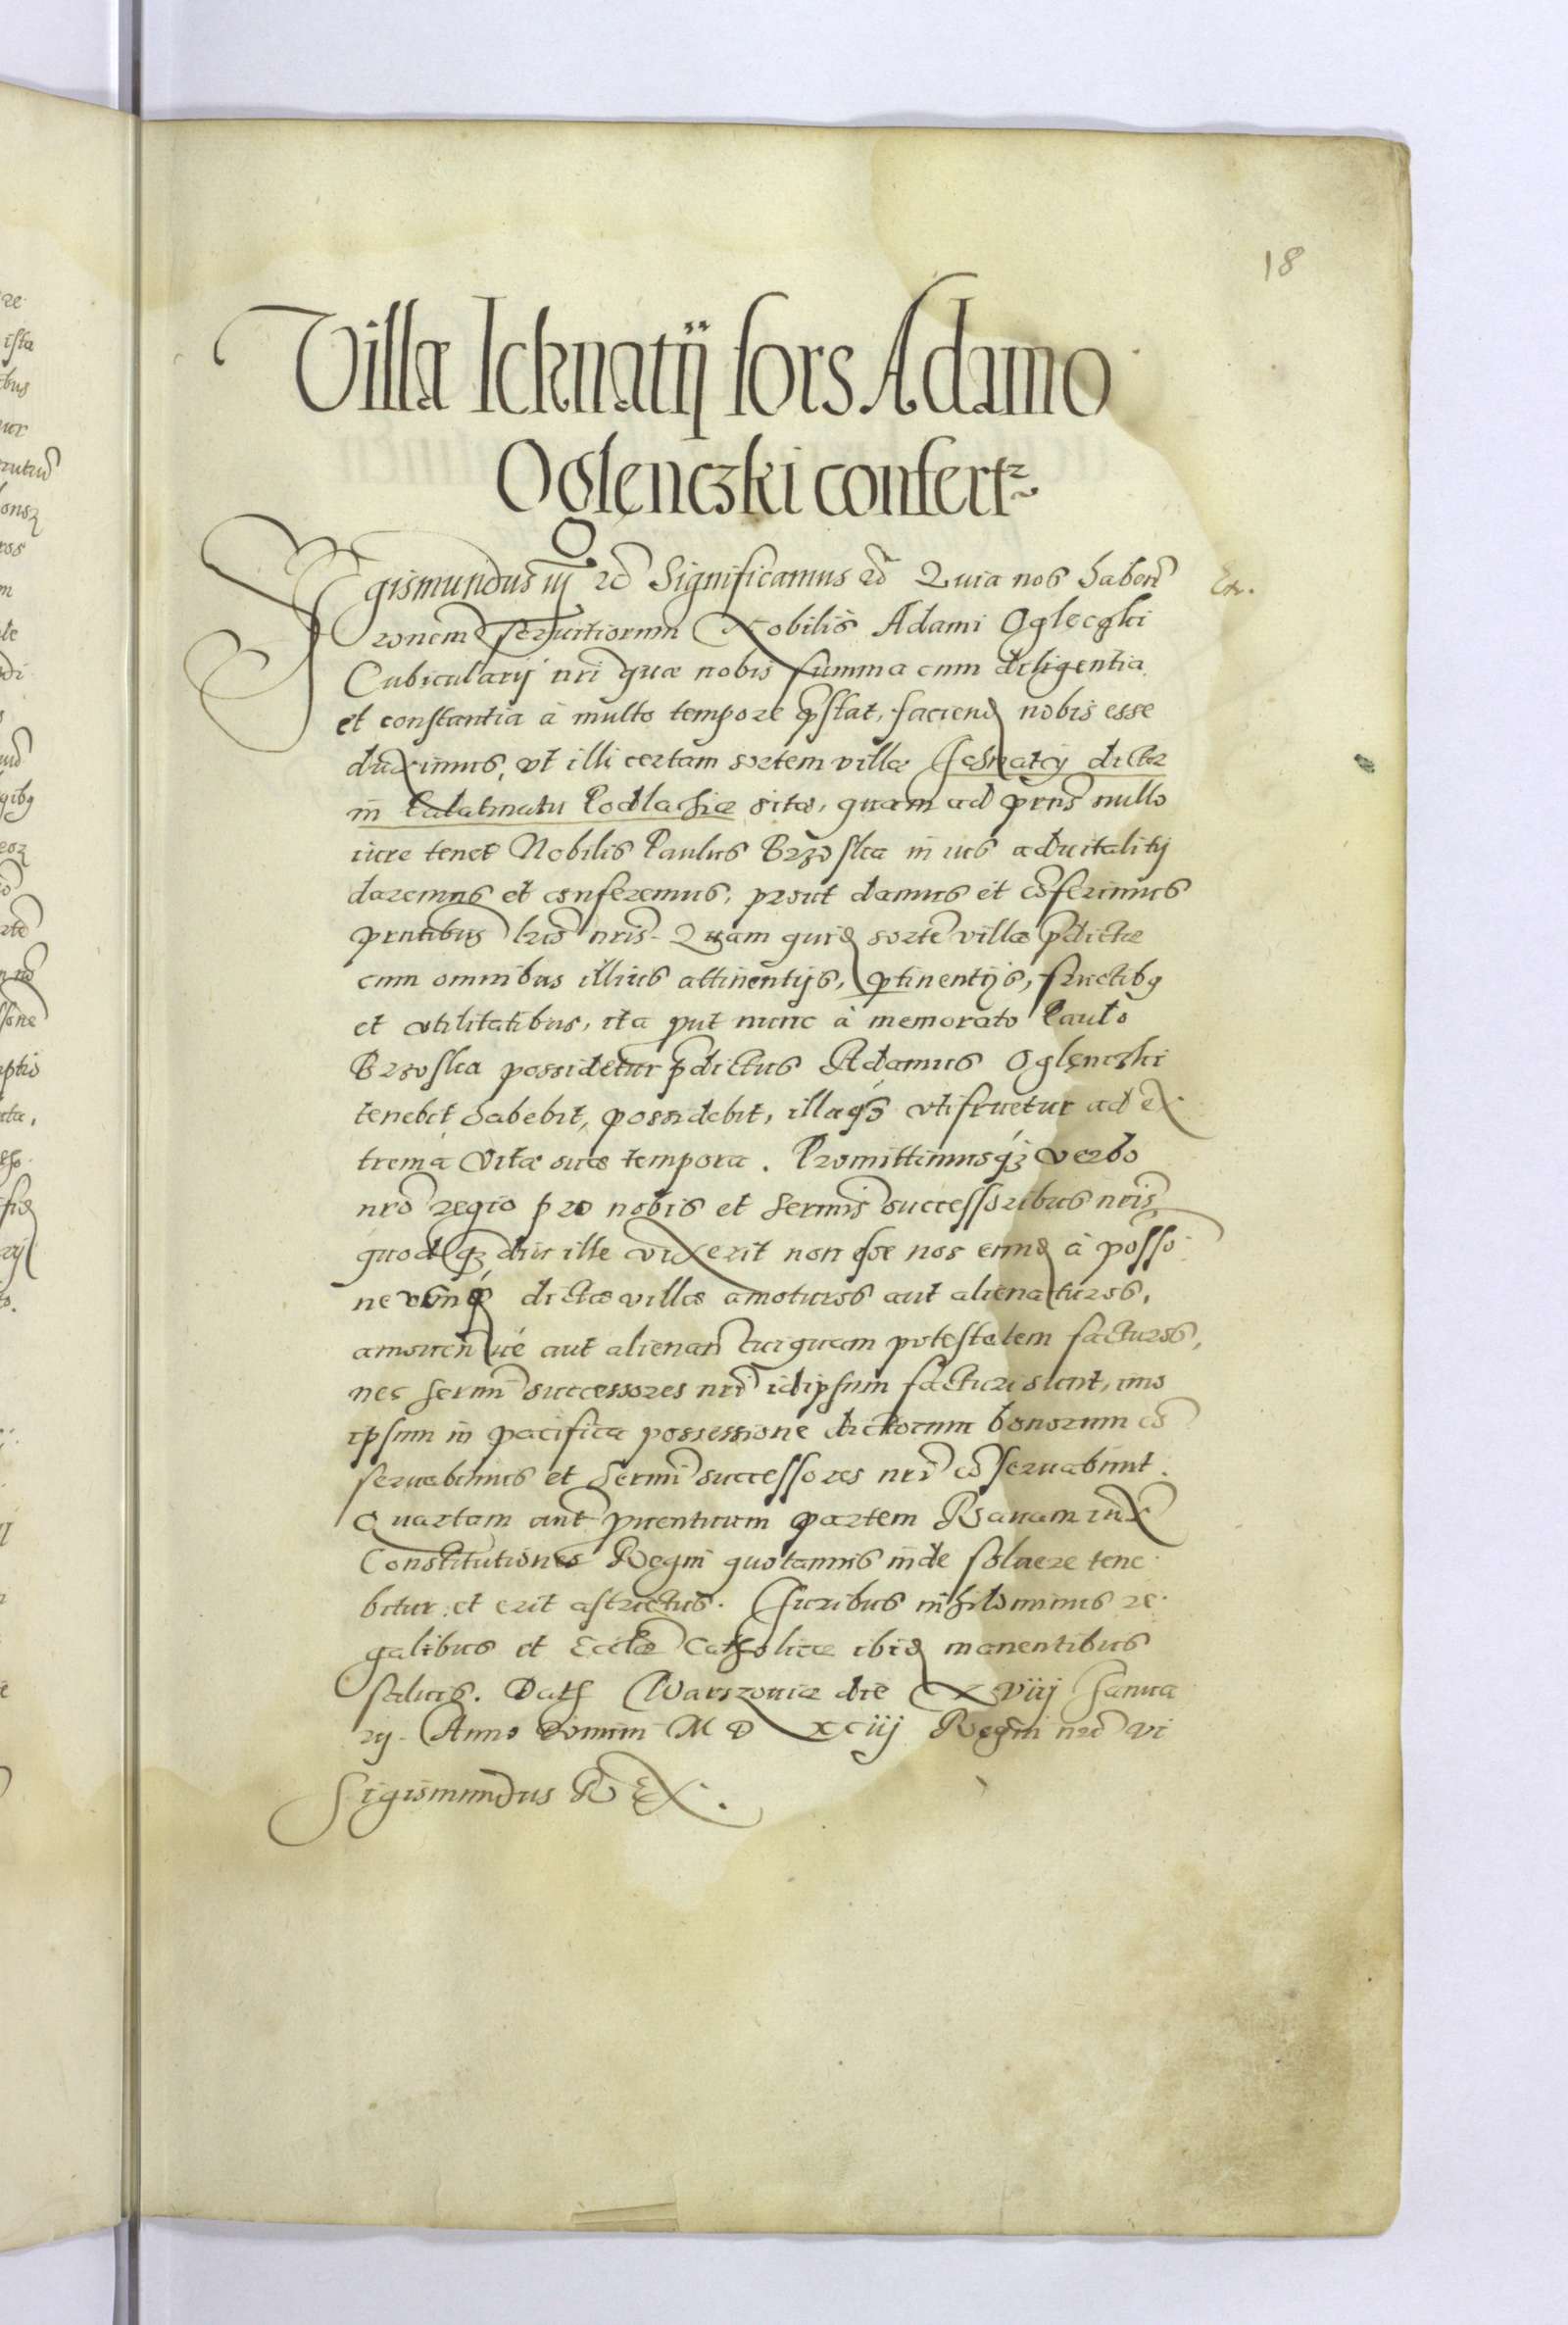 18
Villæ Icknatÿ sors Adamo
Oglęnczki confert͂
Sigismundus iij ec Significamus ec Quia nos haben̄
Etr.
rōnem seruitiorum Nobilis Adami Oglęczki
Cubicularij nr̄i quæ nobis summa cum diligentia
et constantia à multo tempore p̄stat, faciend nobis esse
duximus, vt illi certam sortem villæ dictæ
in Palatinatu Podlachiæ sitæ, quam ad p̄ns nullo
iure tenet Nobilis Paulus Brzoska in ius aduitalitij
daremus et conferemus, prout damus et cōferimus
prntibus lr̄is nr̄is. Quam quid sortē villæ p̄dictæ
cum omnibus illius attinentijs, ptinentijs, fructibq
et vtilitatibus, ita put nunc à memorato Paulo
Brzoska possidetur p̄dictus Adamus Oglęnczki
tenebit habebit, possidebit, illaq vtifruetur ad ex
trema vitæ suæ tempora. Promittimusq verbo
nr̄o regio pro nobis et Sermis successoribus nr̄is
quod q̄ diu ille vixerit non esse nos eund à posso
ne dictæ villæ amoturos aut alienaturos,
amouen ué aut alienan̄ cuiquam potestatem facturos,
nec sermi successores nr̄i idipsum facturi sunt, imo
ipsum in pacifica possessione dictorum bonorum cō
seruabimus et Sermi successores nr̄i cōseruabunt.
Quartam aut̄ puentuum partem Rauam iux̄
Constitutiones Regni quotannis inde soluere tene
bitur et erit astrictus. Iuribus nihilominus re
galibus et Eccl̄æ Catholicæ ibid manentibus
saluis. Dat Warszouiæ die xviij Janua
rij. Anno Domini M D xciij Regni nr̄i vi
Sigismundus REX.